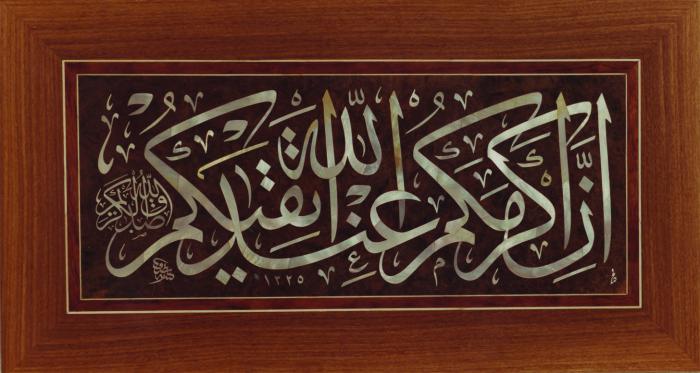 إِنَّ أَكْرَمَكُمْ عِنْدَ اللّٰهِ أَتْقٰيكُمْ
صدق الله الكريم
١٣٢٥